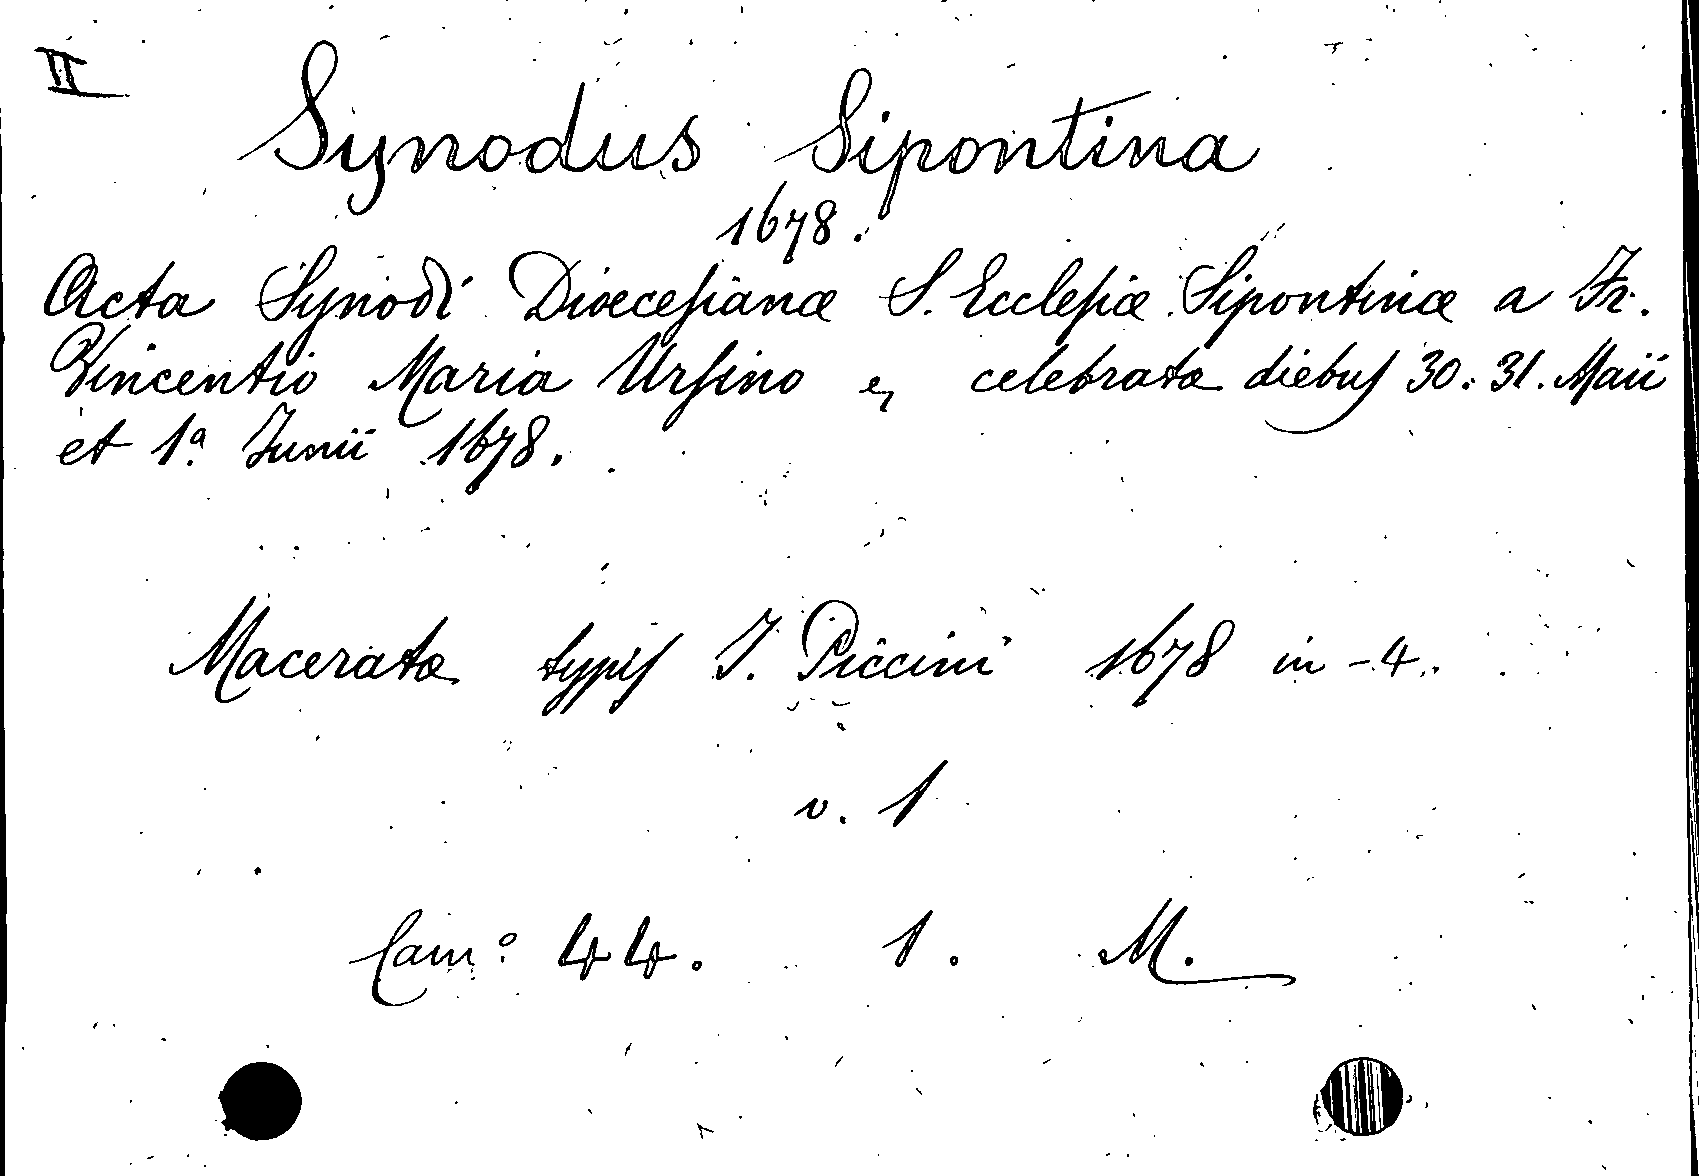 II
Synodus Sipontina
1678.
Acta Synodi Diœceſianæ S. Eccleſiæ Sipontinæ a Fr.
Vincentio Maria Urſino celebratæ diebuſ 30. 31. Maii
et 1ª Junii 1678.
Maceratæ typiſ J. Piccini 1678 in-4.
v. 1
Cam° 44. 1. M.